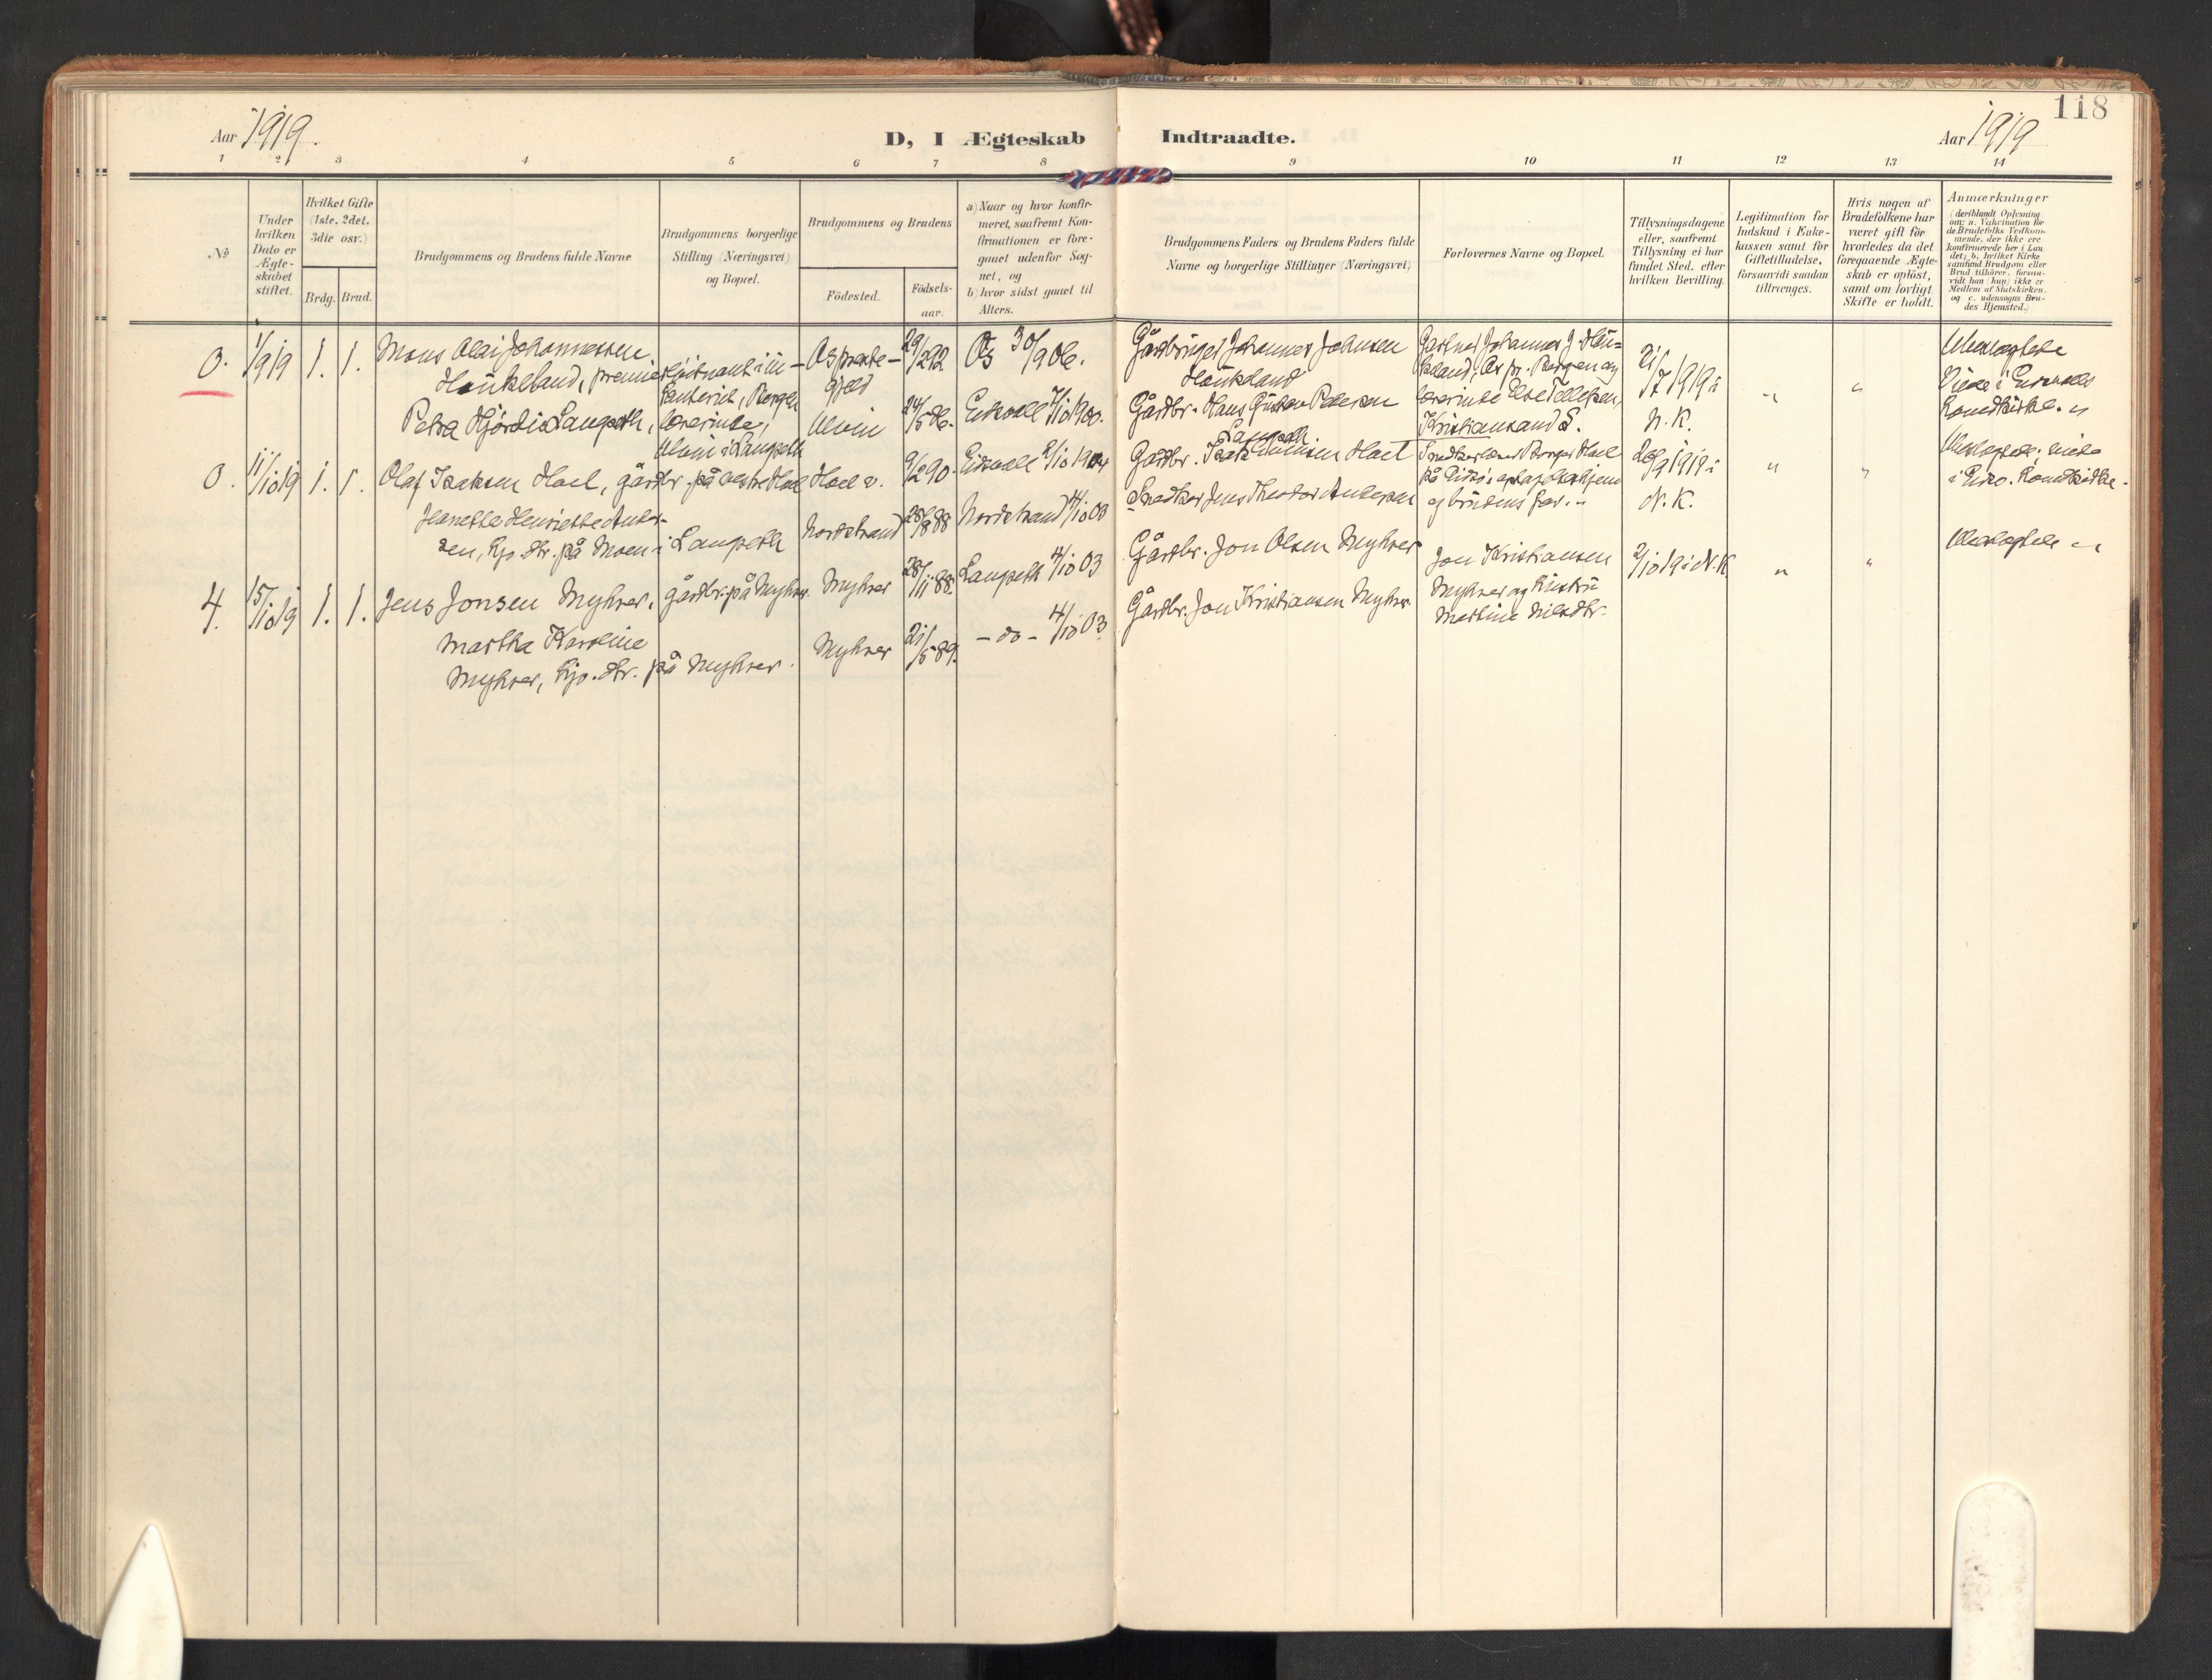 118
Aar 1919.
D, I Ægteskab Indtraadte.
Aar 1919
1 2 3 4 5 6 7 8 9 10 11 12 13 14
No
Under
hvilken
Dato er
Ægte-
skabet
stiftet.
Hvilket Gifte
(1ste, 2det,
3die osv.)
Brdg. Brud.
Brudgommens og Brudens fulde Navne
Brudgommens borgerlige
Stilling (Næringsvei)
og Bopæl.
Brudgommens og Brudens
Födested.
Födsels-
aar.
a) Naar og hvor konfir-
meret, saafremt Kon-
firmationen er fore-
gaaet udenfor Sog-
net, og
b) hvor sidst gaaet til
Alters.
Brudgommens Faders og Brudens Faders fulde
Navne og borgerlige Stillinger (Næringsvei)
Forlovernes Navne og Bopæl.
Tillysningsdagene
eller, saafremt
Tillysning ei har
fundet Sted, efter
hvilken Bevilling.
Legitimation for
Indskud i Enke-
kassen samt for
Giftetilladelse,
forsaavidt saadan
tiltrænges.
Hvis nogen af
Brudefolkene har
været gift för
hvorledes da det
foregaaende Ægte-
skab er oplöst,
samt om lovligt
Skifte er holdt.
Anmærkninger
(deriblandt Oplysning
om: a. Vakcination for
de Brudefolks Vedkom-
mende, der ikke ere
konfirmerede her i Lan
det; b. hvilket Kirke
samfund Brudgom eller
Brud tilhörer, forsaa-
vidt han (hun) ikke er
Medlem af Statskirken.
og c. udensogns Bru-
des Hjemsted.)
0. 1/9 19 1. 1. Mons Olai Johannessen
Haukeland, premierlöitnant i in-
fanteriet, Bergen
Os preste-
gjeld
29/2 92 Os 30/9 06.
Gårdbruger Johannes Johnsen
Haukeland
Gartner Johannes J. Hau-
keland, Os pr. Bergen og
lærerinde Else Tellefsen,
Kristiansand S.
21/7 1919 i
N. K.
" "
Petra Hjördis Langseth, lærerinde,
Ulvin i Langseth
Ulvin 24/5 86. Eidsvoll 7/10 1900.
Gårdbr. Hans Gustav Pedersen
Langseth.
0. 11/10 19 1. 1. Olaf Isaksen Hoel, gårdbr. på vestre Hoel Hoel v. 9/2 90. Eidsvoll 2/10 1904
Gårdbr. Isak
Hoel
28/9 1919 i
N. K.
" "
Hanette Henriette Ander-
sen, Gjo. dtr. på Moen i Langseth Nordstrand 28/8 88 Nordstrand 4/10 03
Snedker Jens Theodor Andersen
og brudens far.
4. 15/10 19 1. 1. Jens Jonsen Myhrer, gårdbr. på Myhrer. Myhrer 28/11 88. Langseth 4/10 03
Gårdbr. Jon Olsen Myhrer
Jon Kristiansen
Myhrer og
Martine Nilsdtr.
2/10 19 i N. K.
" "
Martha Karoline
Myhrer, Gjo. dtr. på Myhrer. Myhrer 21/5 89. - do - 4/10 03
Gårdbr. Jon Kristiansen Myhrer.